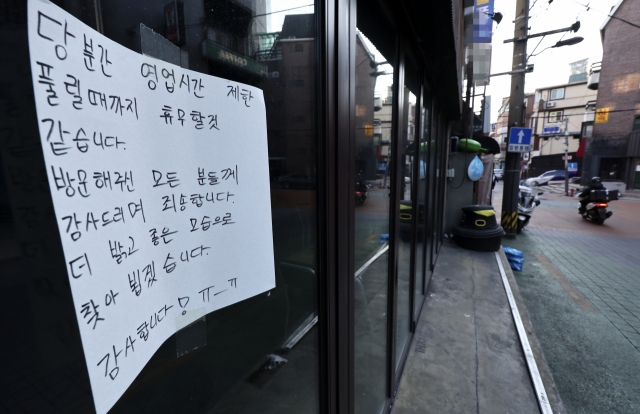 당분간 영업시간 제한
풀릴때까지 휴무할것
같습니다.
방문해주신 모든 분들께
감사드리며 죄송합니다.
더 밝고 좋은 모습으로
찾아 뵙겠습니다.
감사합니다 ㅠ_ㅠ